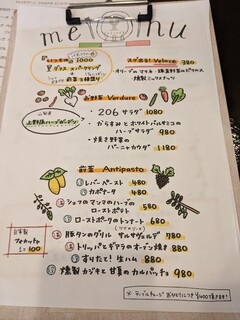 menu
1000
グラス スパークリング
前菜3種盛り
スグ出る! Veloce 380
・オリーブのマリネ・錦糸野菜のピクルス
・燻製ミックスナッツ
お野菜 Verdure
・206 サラダ 1080
・からすみとホワイトバルサミコの
ハーブサラダ 980
・焼き野菜の
バーニャカウダ 1180
前菜 Antipasto
① レバーペースト 480
② カポナータ 480
③ シェフのマンマのハーブの
ローストポテト 580
④ ローストポークのトンナート 680
⑤ 豚タンのグリル サルサヴェルデ 780
⑥ トリッパとギアラのオーブン焼き 880
⑦ すりたて! 生ハム 880
⑧ 燻製カジキと甘夏のカルパッチョ 980
自家製
フォカッチャ
100